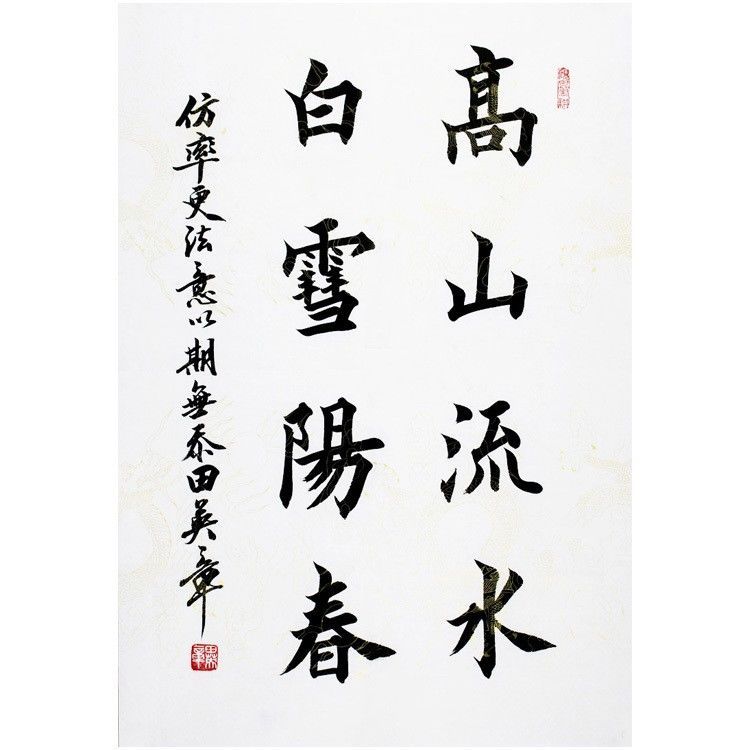 髙山流水
白䨮陽春
仿率更法意以期無忝田英章